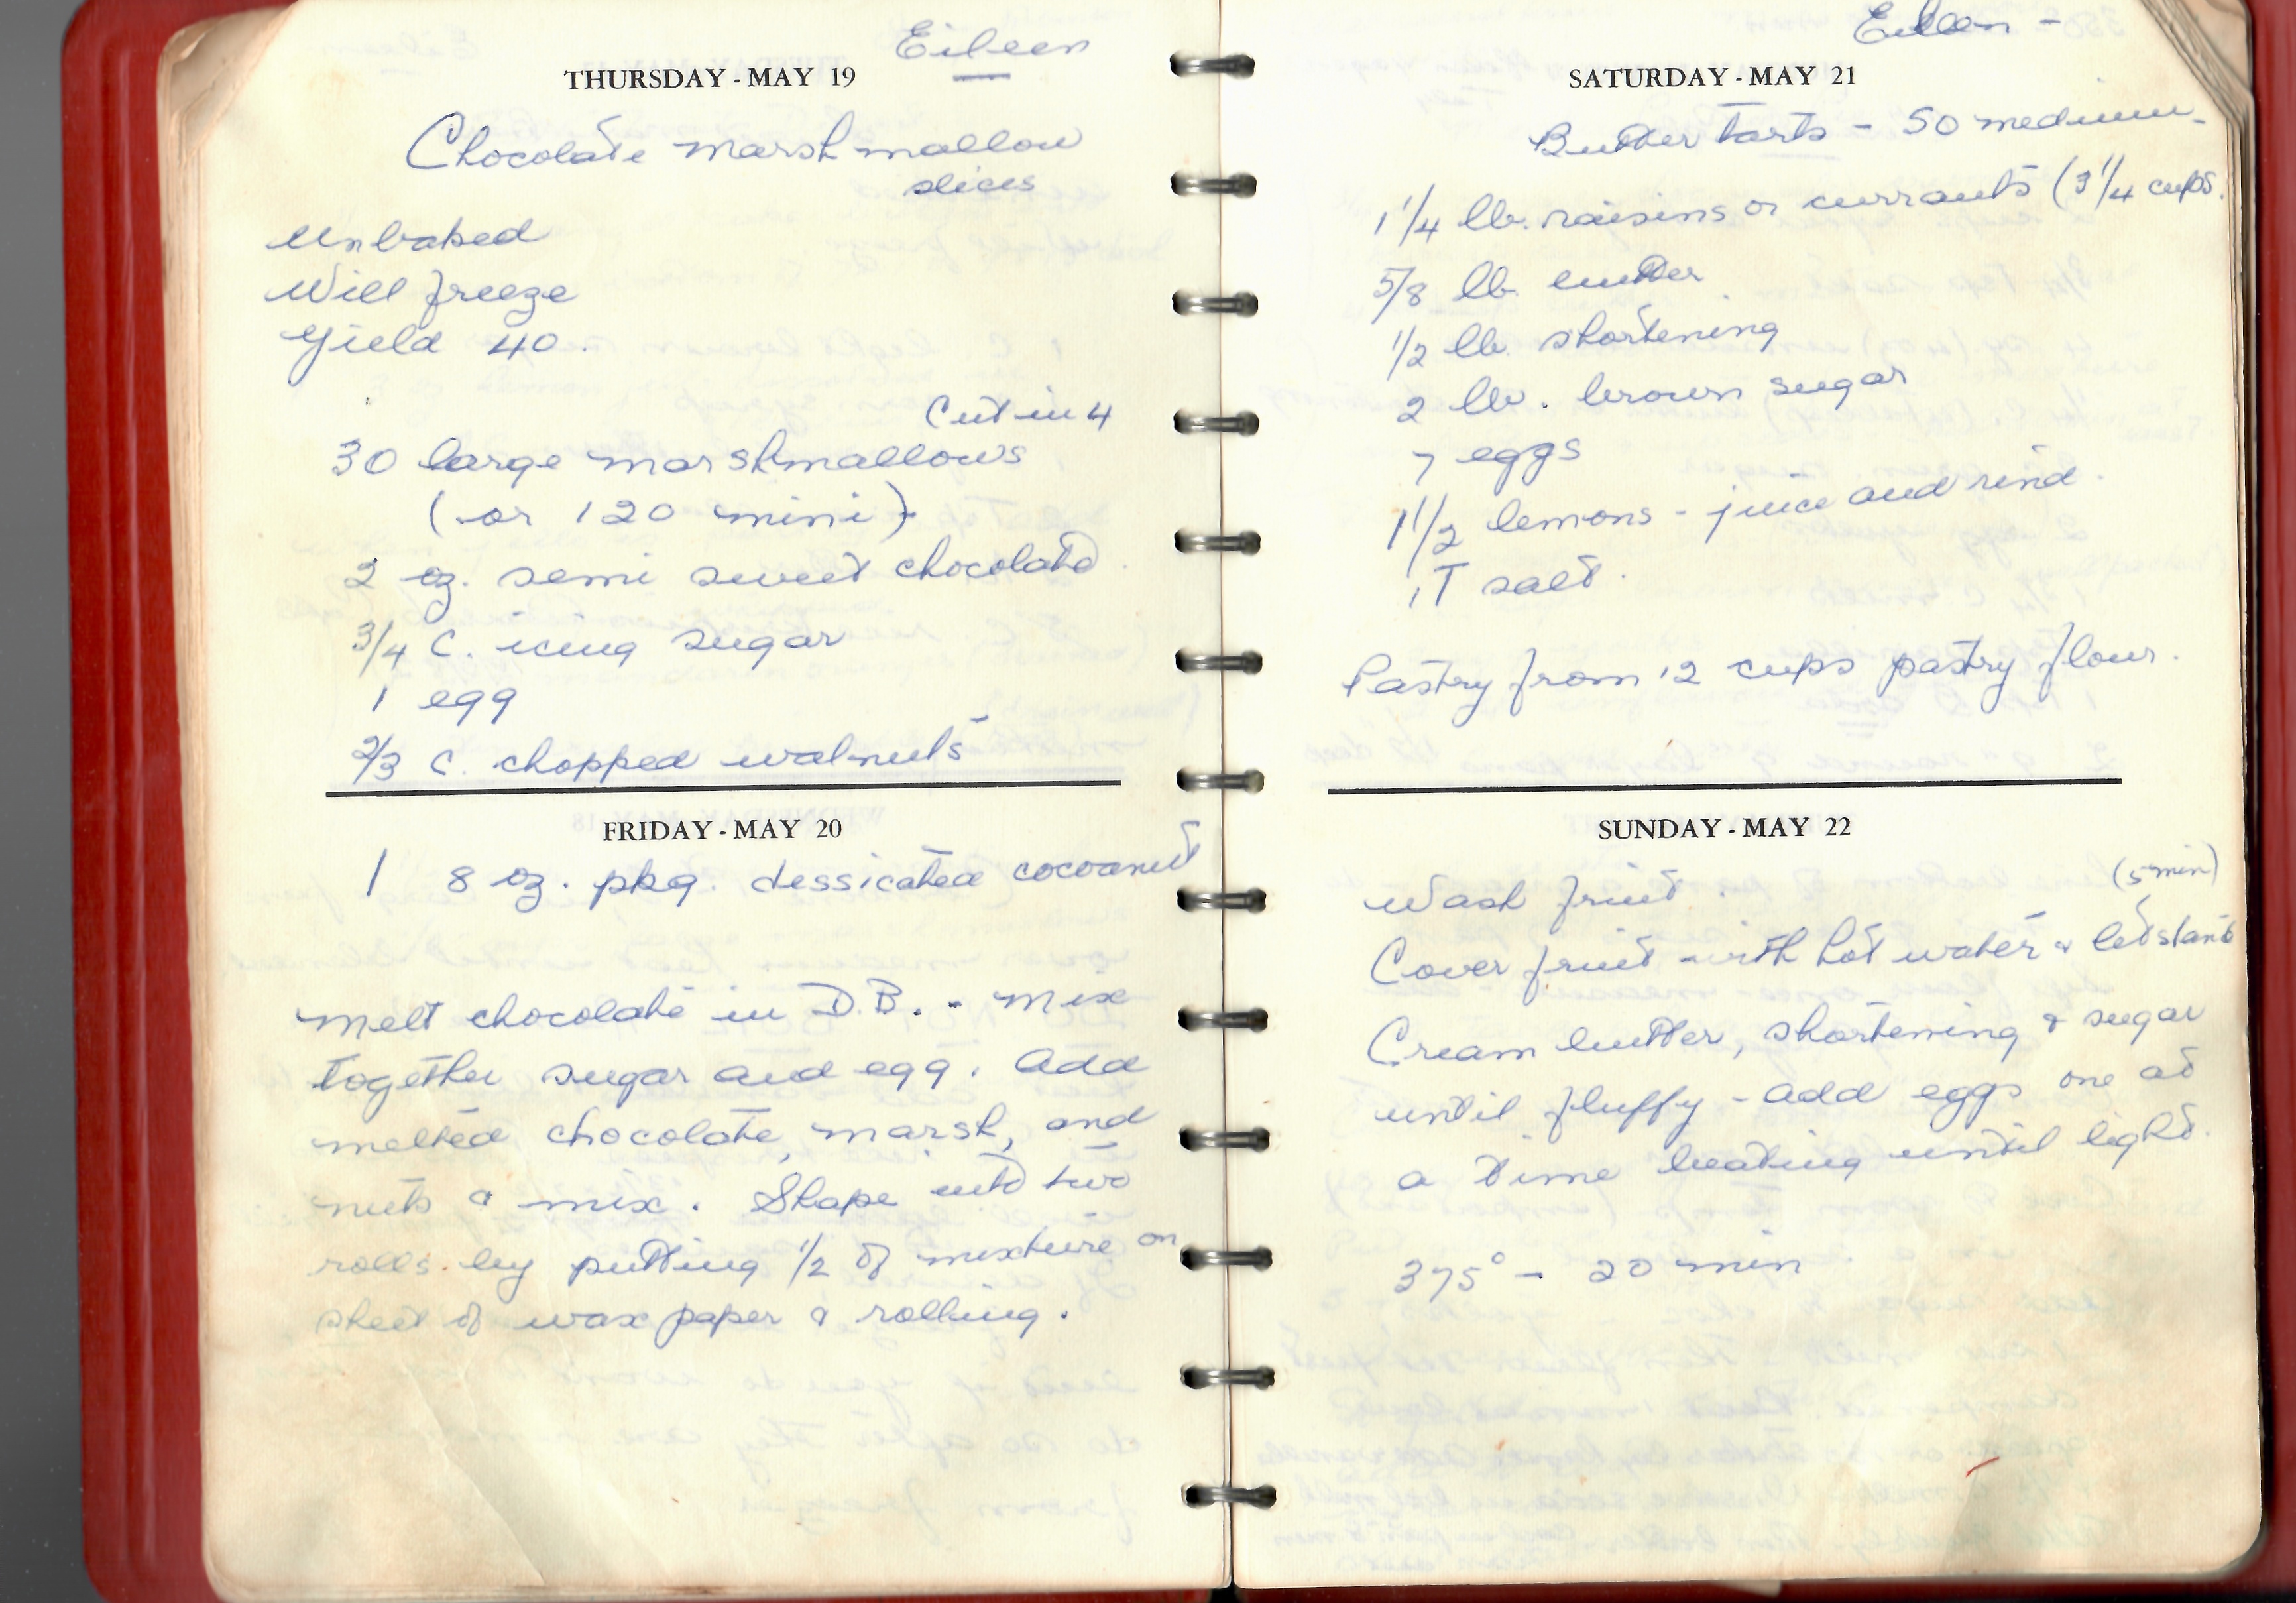 Eileen
THURSDAY - MAY 19
Chocolate marshmallow
slices
Unbaked
Will freeze
Yield 40.
Cut in 4
30 large marshmallows
(or 120 mini)
2 oz. semi sweet chocolate
3/4 C. icing sugar
1 egg
2/3 C. chopped walnuts
FRIDAY - MAY 20
1 8 oz. pkg. dessicated cocoanut
Melt chocolate in D.B. - Mix
together sugar and egg. Add
melted chocolate, marsh, and
nuts & mix. Shape into two
rolls by putting 1/2 of mixture on
sheet of wax paper & rolling.
Eileen -
SATURDAY - MAY 21
Butter tarts - 50 medium -
1 1/4 lb. raisins or currants (3 1/4 cups.
5/8 lb. butter
1/2 lb. shortening
2 lb. brown sugar
7 eggs
1 1/2 lemons - juice and rind.
1 T salt.
Pastry from 12 cups pastry flour.
SUNDAY - MAY 22
Wash fruit. (5 min)
Cover fruit with hot water & let stand
Cream butter, shortening & sugar
until fluffy - add eggs one at
a time beating until light.
375° - 20 min